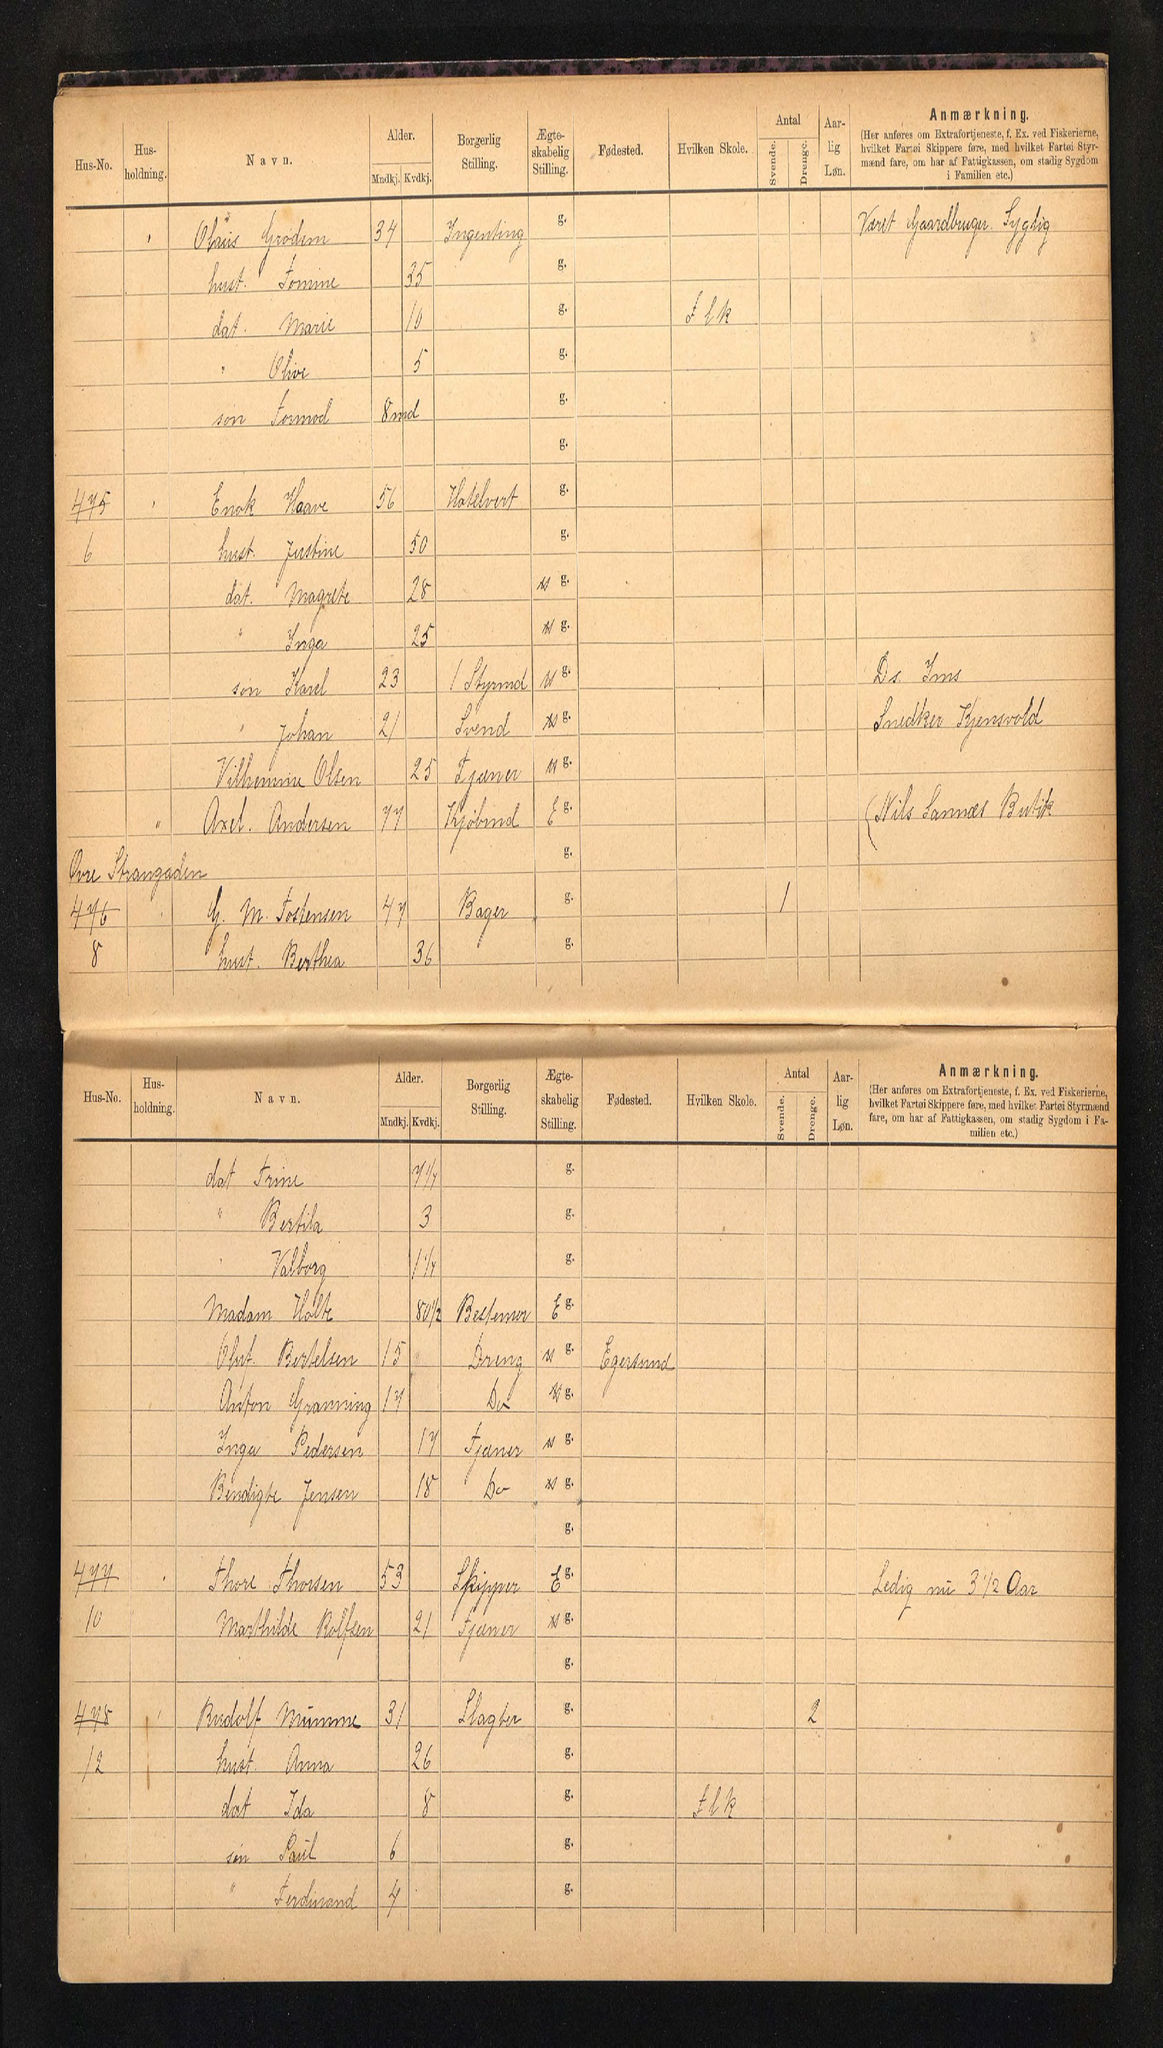 Hus-No. Hus-holdning. Navn. Alder. Mndkj. Kvdkj. Borgerlig Stilling. Ægte-skabelig Stilling. Fødested. Hvilken Skole. Antal Svende. Drenge. Aar-lig Løn. Anmærkning.
(Her anføres om Extrafortjeneste, f. Ex. ved Fiskerierne,
hvilket Fartøi Skippere føre, med hvilket Fartøi Styr-
mænd fare, om har af Fattigkassen, om stadig Sygdom
i Familien etc.)
" Olaus Grødem 34 Ingenting g. Været Gaardbruger. Syglig
hust. Tomine 35 g.
dat. Marie 10 g. Flk
" Olive 5 g.
søn Tormod 8 md g.
g.
475 " Enok Haave 56 Hotelvert g.
6 hust. Justine 50 g.
dat. Magrete 28 u g.
" Inga 25 u g.
søn Karel 23 1 Styrmd u g. Ds. Ims
" Johan 21 Svend u g. Snedker Kjensvold
Vilhemine Olsen 25 Tjener u g.
" Axel. Andersen 77 Kjøbmd E g. (Nils Sannæs Butik
Øvre Strangaden g.
476 " G. M. Tostensen 47 Bager g. 1
8 hust. Berthea 36 g.
Hus-No. Hus-holdning. Navn. Alder. Mndkj. Kvdkj. Borgerlig Stilling. Ægte-skabelig Stilling. Fødested. Hvilken Skole. Antal Svende. Drenge. Aar-lig Løn. Anmærkning.
(Her anføres om Extrafortjeneste, f. Ex. ved Fiskerierne,
hvilket Fartøi Skippere føre, med hvilket Fartøi Styrmænd
fare, om har af Fattigkassen, om stadig Sygdom i Fa-
milien etc.)
dat Trine 7 1/4 g.
" Bertila 3 g.
" Valborg 1 1/4 g.
Madam Holte 80 1/2 Bestemor E g.
Bertelsen 15 Dreng u g. Egersund
Anton Granning 17 Do u g.
Inga Pedersen 17 Tjener u g.
Bendigte Jensen 18 Do u g.
g.
477 " Thore Thorsen 53 Skipper E g. Ledig nu 3 1/2 Aar
10 Marthilde Rolfsen 21 Tjener u g.
g.
478 " Rudolf Mumme 31 Slagter g. 2
12 hust. Anna 26 g.
dat Ida 8 g. Flk
søn Paul 6 g.
" Ferdinand 4 g.